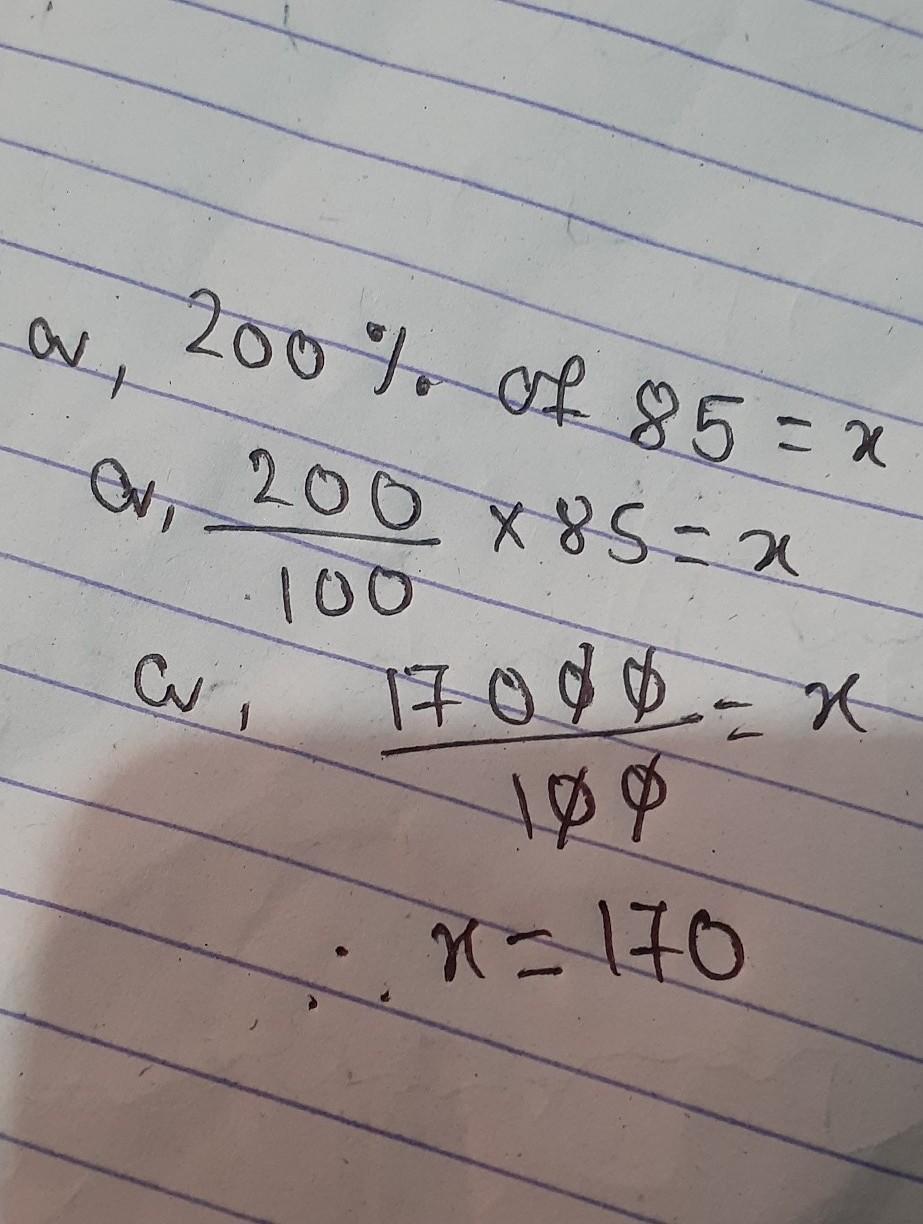 or, 200% of 85 = x
or, 200/100 × 85 = x
or, 17000/100 = x
∴ x = 170